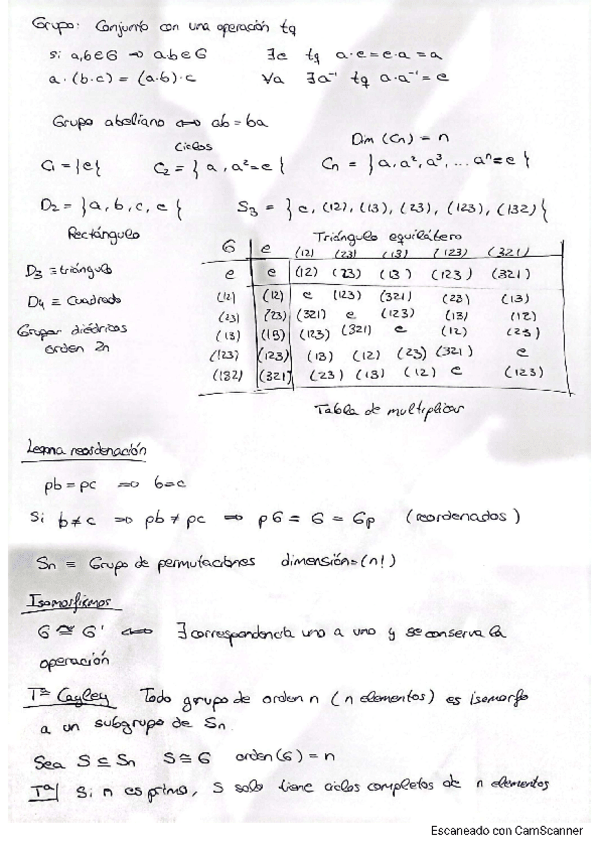 Grupo: Conjunto con una operación tq
si a,b∈G ⇒ a.b∈G ∃e tq a·e=e·a=a
a·(b·c) = (a·b)·c ∀a ∃a⁻¹ tq a·a⁻¹=e
Grupo abeliano ⇔ ab=ba
Ciclos Dim (Cn) = n
C₁ = {e} C₂ = {a, a²=e} Cn = {a, a², a³, ... aⁿ=e}
D₂ = {a, b, c, e} S₃ = {e, (12), (13), (23), (123), (132)}
Rectángulo Triángulo equilátero
G e (12) (23) (13) (123) (321)
D₃ ≡ triángulo e e (12) (23) (13) (123) (321)
D₄ ≡ Cuadrado (12) (12) e (123) (321) (23) (13)
(23) (23) (321) e (123) (13) (12)
Grupos diédricos (13) (13) (123) (321) e (12) (23)
orden 2n (123) (123) (13) (12) (23) (321) e
(132) (321) (23) (13) (12) e (123)
Tabla de multiplicar
Lema reordenación
pb = pc ⇒ b=c
Si b≠c ⇒ pb ≠ pc ⇒ pG = G = Gp (reordenados)
Sn ≡ Grupo de permutaciones dimensión=(n!)
Isomorfismos
G ≅ G' ⇔ ∃ correspondencia uno a uno y se conserva la
operación
Tª Cayley Todo grupo de orden n (n elementos) es isomorfo
a un subgrupo de Sn
Sea S ⊆ Sn S ≅ G orden(G) = n
Tª Si n es primo, S solo tiene ciclos completos de n elementos
Escaneado con CamScanner